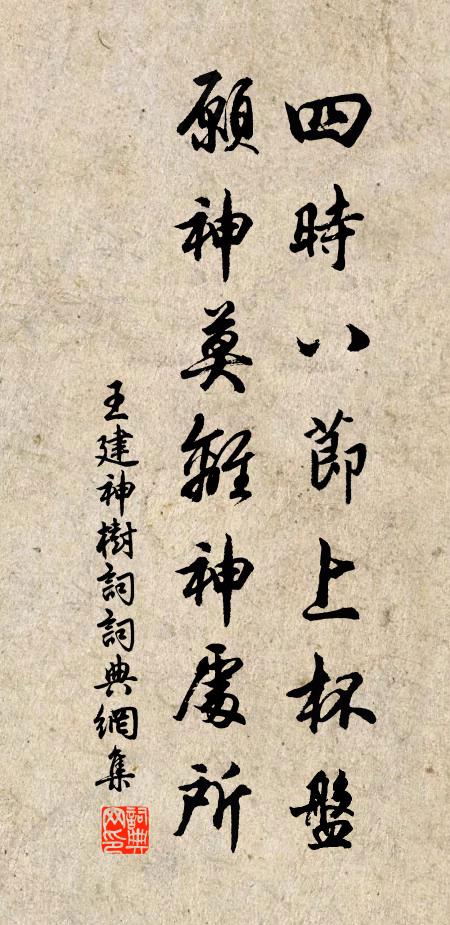 四時八節上杯盤
願神莫離神處所
王建神樹詞詞典網集
詞典网印